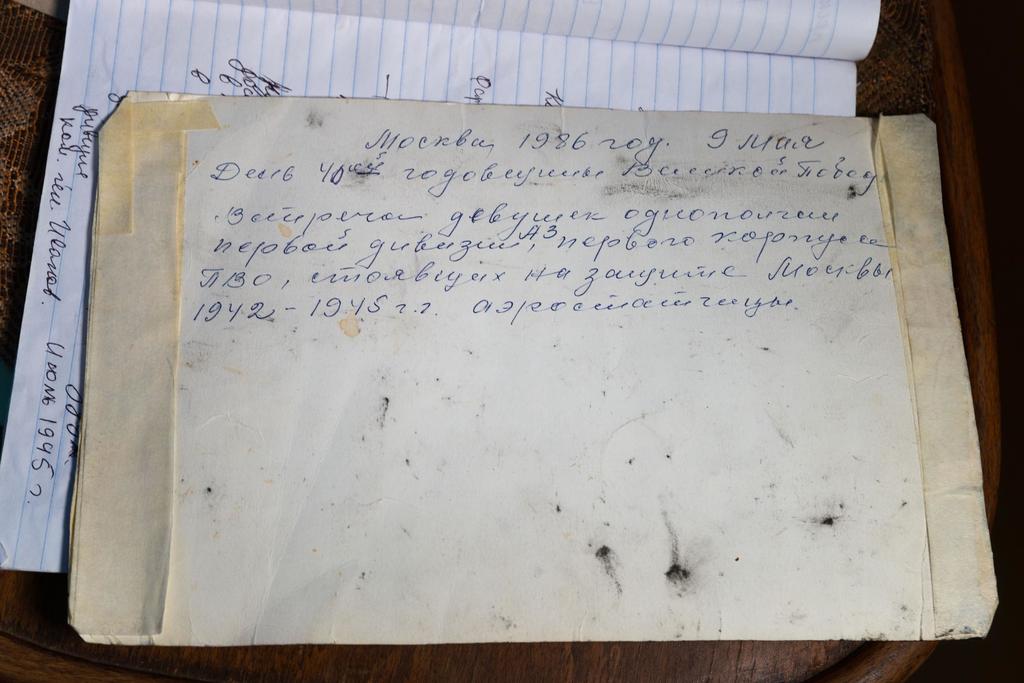 Москва, 1986 год. 9 Мая
День 40ой годовщины Великой Побед
Встреча девушек однополчан
первой дивизии АЗ, первого корпуса
ПВО, стоявших на защите Москвы
1942-1945 г.г. аэростатчицы.
Июнь 1945 г.